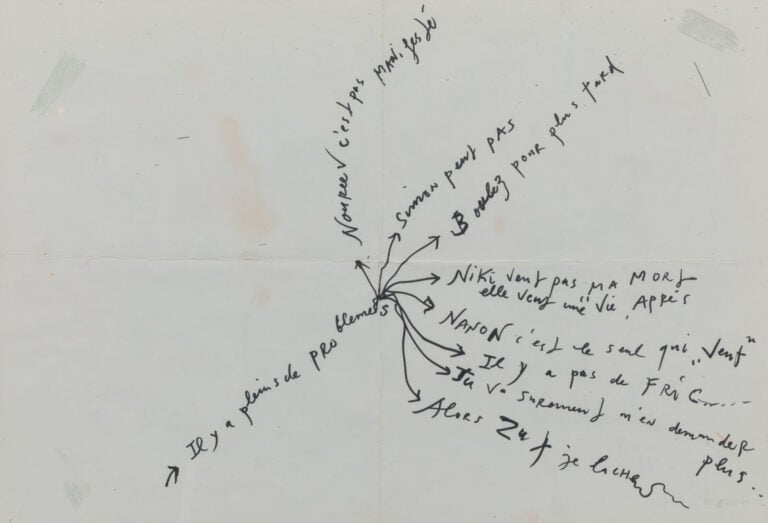 Noureev c'est pas MANifesté
Simon peut pas
Boulez pour plus tard
Niki veut pas MA MORT
elle veut une "Vie" Après
NANON c'est le seul qui "veut"
Il y a pas de FRIC....
Tu va surement m'en demander
plus..
Alors Zut je lache
Il y a pleins de PROblemes